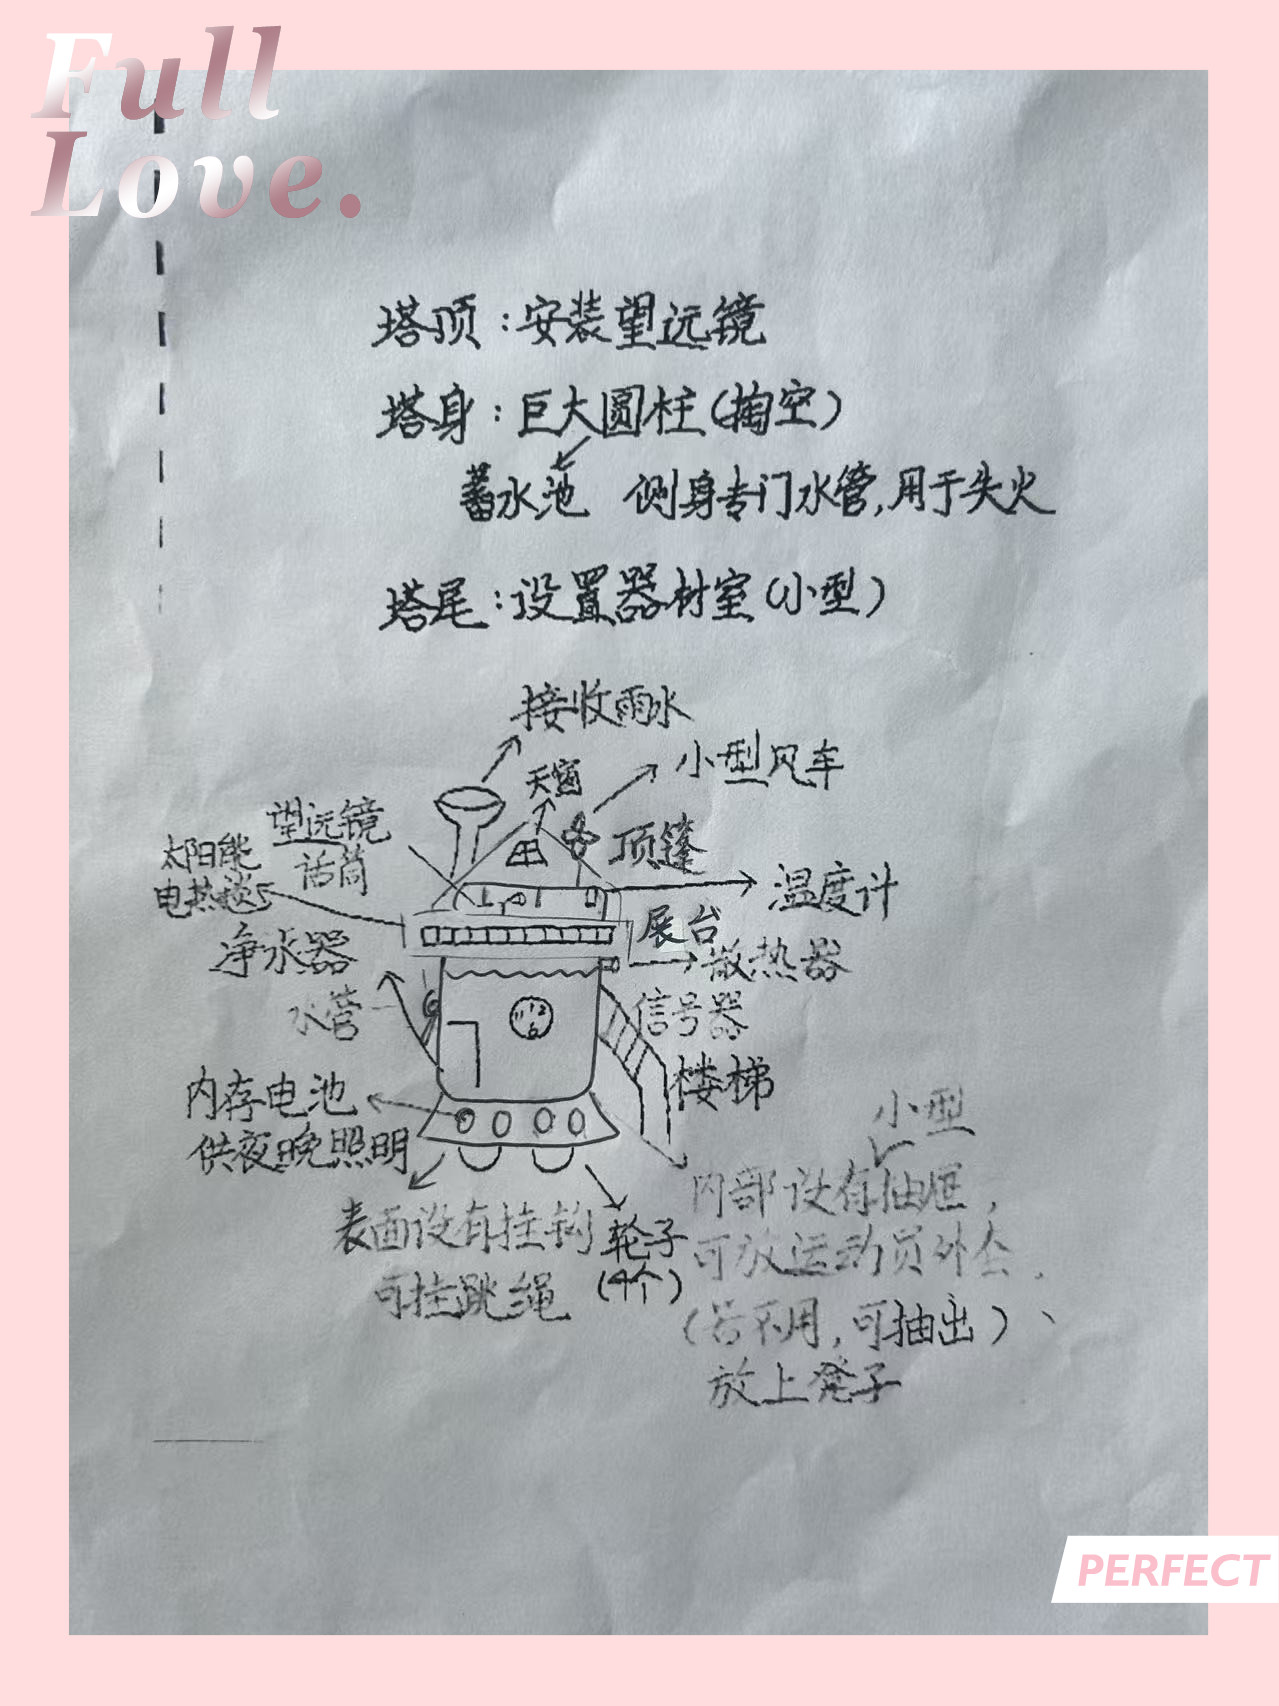 Full
Love.
塔顶：安装望远镜
塔身：巨大圆柱（掏空）
蓄水池 侧身专门水管，用于失火
塔尾：设置器材室（小型）
接收雨水
天窗
小型风车
望远镜
话筒
顶篷
太阳能
电热
温度计
展台
净水器
散热器
水管
信号器
楼梯
11 12
6
内存电池
供夜晚照明
小型
内部设有抽屉，
可放运动员外套，
表面设有挂钩
可挂跳绳
轮子
（4个）
（若不用，可抽出）、
放上凳子
PERFECT